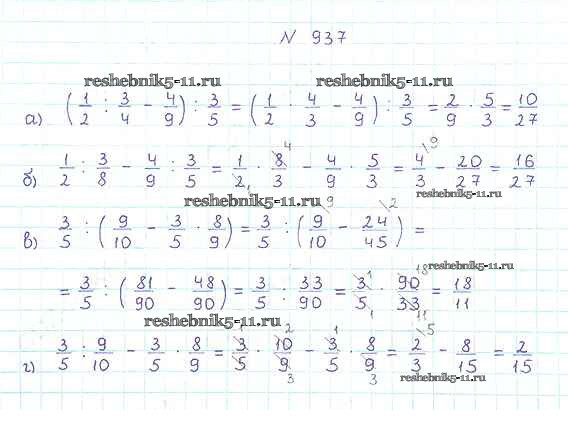 N 937
reshebnik5-11.ru reshebnik5-11.ru
а) (1/2 : 3/4 - 4/9) : 3/5 = (1/2 · 4/3 - 4/9) : 3/5 = 2/9 · 5/3 = 10/27
б) 1/2 : 3/8 - 4/9 : 3/5 = 1/2 · 8/3 - 4/9 · 5/3 = 4/3 - 20/27 = 16/27
reshebnik5-11.ru reshebnik5-11.ru
в) 3/5 : (9/10 - 3/5 · 8/9) = 3/5 : (9/10 - 24/45) =
= 3/5 : (81/90 - 48/90) = 3/5 : 33/90 = 3/5 · 90/33 = 18/11
reshebnik5-11.ru reshebnik5-11.ru
г) 3/5 : 9/10 - 3/5 · 8/9 = 3/5 · 10/9 - 3/5 · 8/9 = 2/3 - 8/15 = 2/15
reshebnik5-11.ru